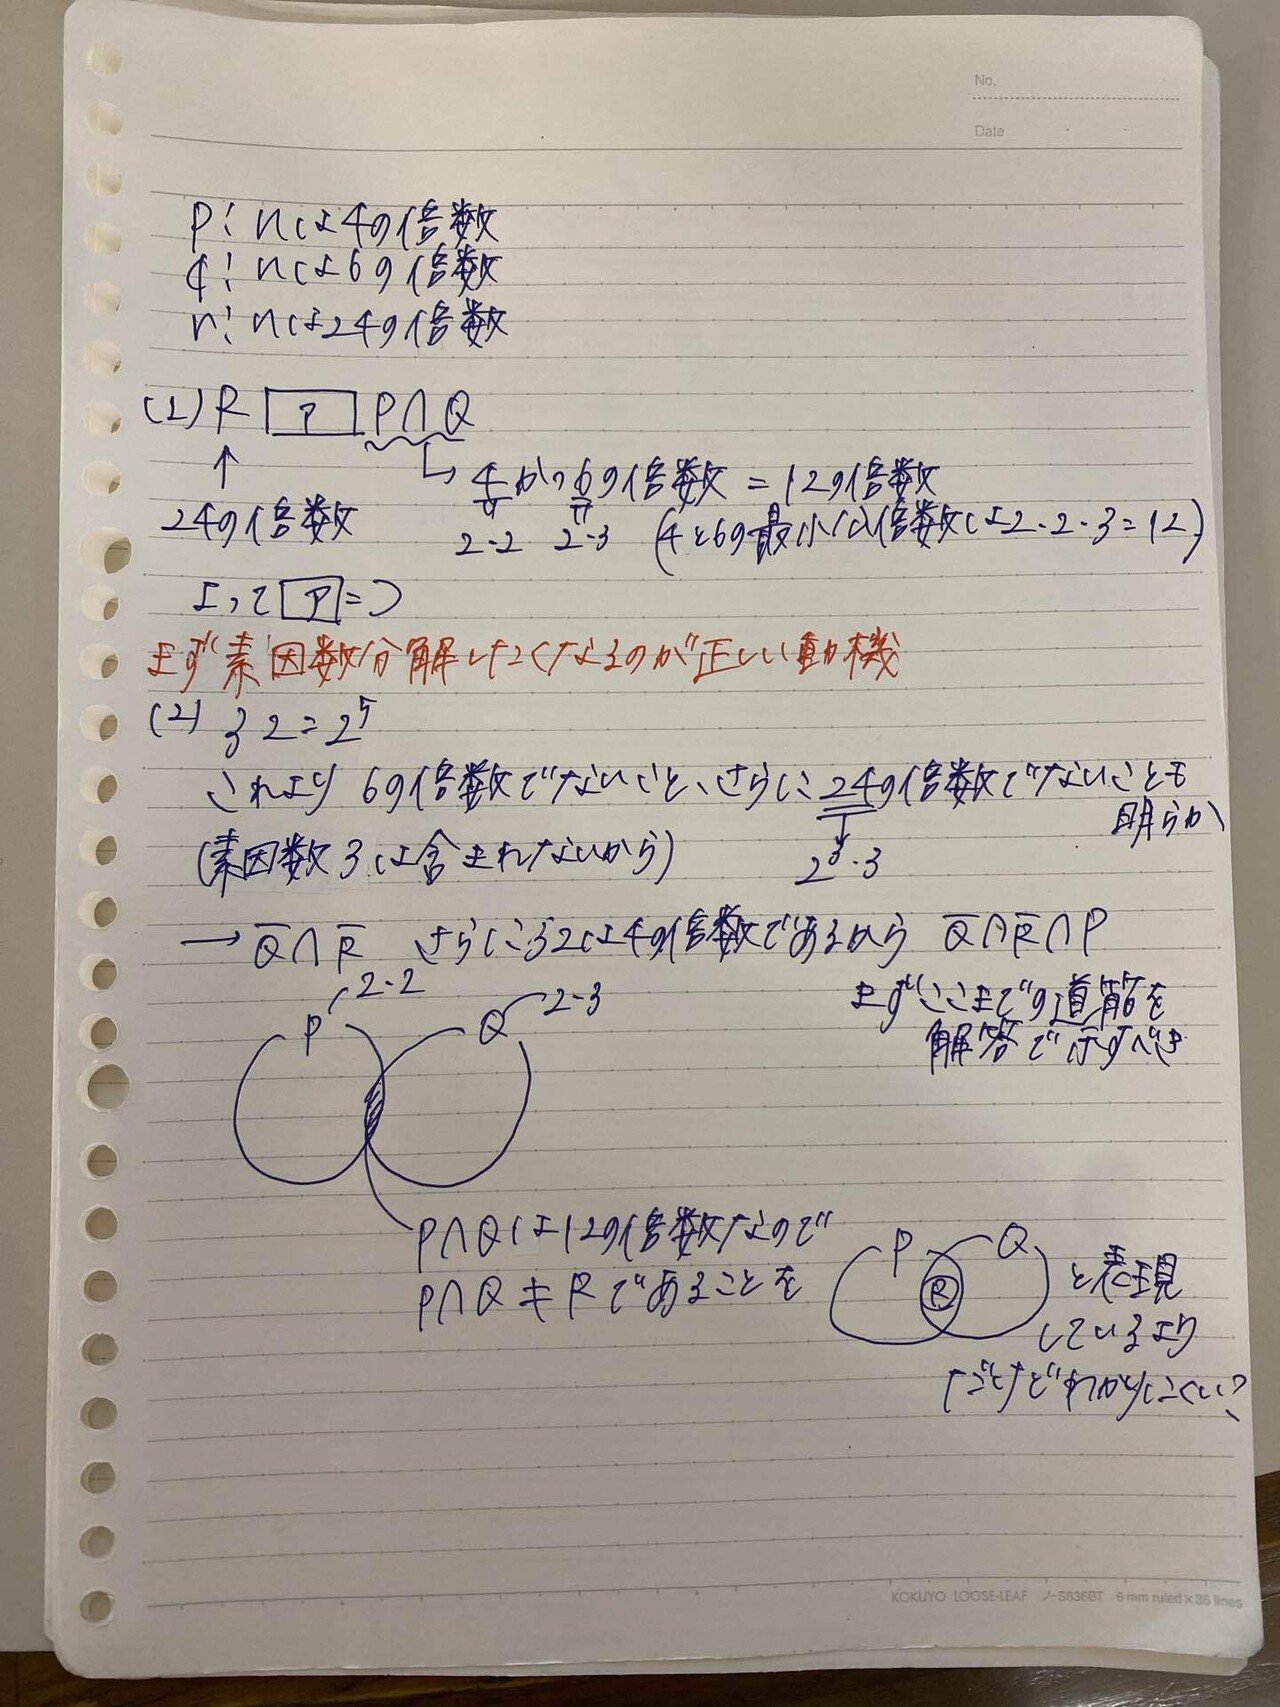 No.
Date
P: nは4の倍数
q: nは6の倍数
r: nは24の倍数
(1) R ア P∩Q
↑ ↳ 4かつ6の倍数 = 12の倍数
24の倍数 2・2 2・3 (4と6の最小公倍数は2・2・3=12)
よって ア =⊃
まず素因数分解したくなるのが正しい動機
(2) 32=2⁵
これより 6の倍数でないこと、さらに24の倍数でないことも
明らか
(素因数3は含まれないから) 2³・3
→ Q̅∩R̅ さらに32は4の倍数であるから Q̅∩R̅∩P
P 2・2 Q 2・3
まずここまでの道筋を
解答で示すべき
P∩Qは12の倍数なので
P∩Q≠Rであることを P Q R と表現
しているより
だけどわかりにくい?
KOKUYO LOOSE-LEAF ノ-S836BT 6 mm ruled×36 lines